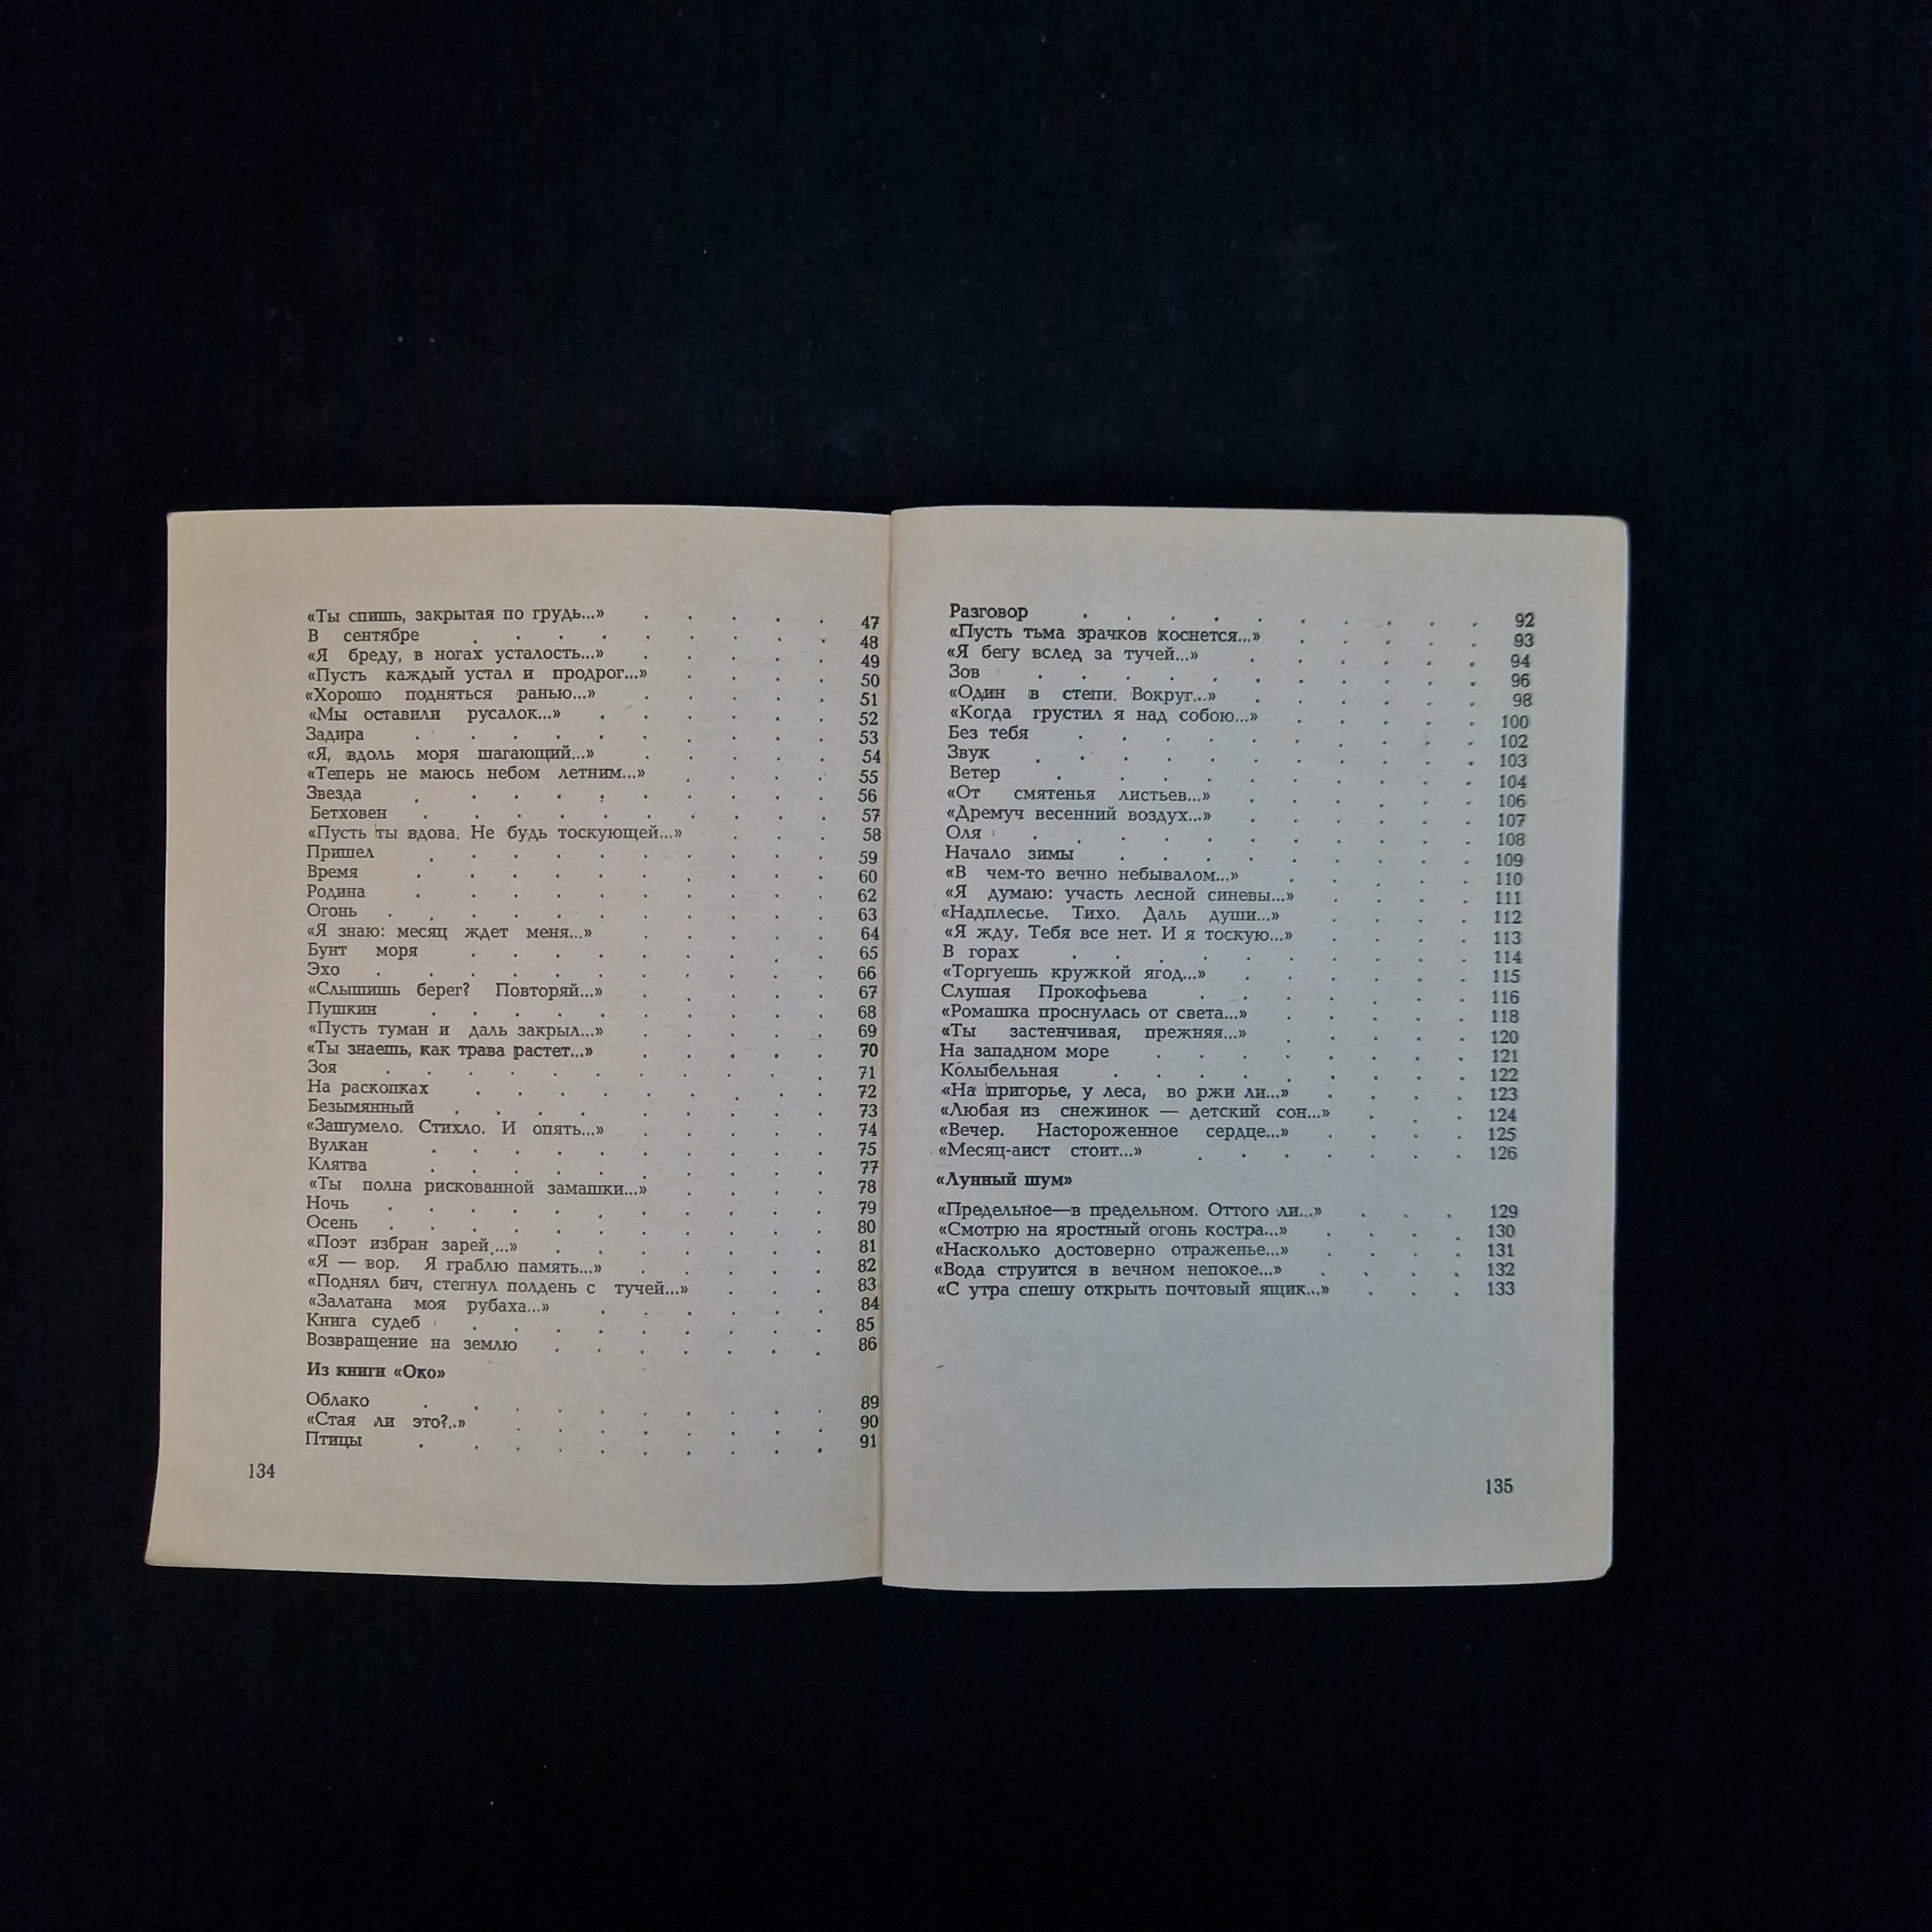 «Ты спишь, закрытая по грудь...» . . . . . 47
В сентябре . . . . . . . . . 48
«Я бреду, в ногах усталость...» . . . . . 49
«Пусть каждый устал и продрог...» . . . . 50
«Хорошо подняться ранью...» . . . . . 51
«Мы оставили русалок...» . . . . . . 52
Задира . . . . . . . . . . 53
«Я, вдоль моря шагающий...» . . . . . 54
«Теперь не маюсь небом летним...» . . . . 55
Звезда . . . . . . . . . . 56
Бетховен . . . . . . . . . . 57
«Пусть ты вдова. Не будь тоскующей...» . . . 58
Пришел . . . . . . . . . . 59
Время . . . . . . . . . . 60
Родина . . . . . . . . . . 62
Огонь . . . . . . . . . . . 63
«Я знаю: месяц ждет меня...» . . . . . 64
Бунт моря . . . . . . . . . 65
Эхо . . . . . . . . . . . 66
«Слышишь берег? Повторяй...» . . . . . 67
Пушкин . . . . . . . . . . 68
«Пусть туман и даль закрыл...» . . . . . 69
«Ты знаешь, как трава растет...» . . . . . 70
Зоя . . . . . . . . . . . 71
На раскопках . . . . . . . . . 72
Безымянный . . . . . . . . . 73
«Зашумело. Стихло. И опять...» . . . . . 74
Вулкан . . . . . . . . . . 75
Клятва . . . . . . . . . . 77
«Ты полна рискованной замашки...» . . . . 78
Ночь . . . . . . . . . . . 79
Осень . . . . . . . . . . . 80
«Поэт избран зарей...» . . . . . . . 81
«Я — вор. Я граблю память...» . . . . . 82
«Поднял бич, стегнул полдень с тучей...» . . . 83
«Залатана моя рубаха...» . . . . . . 84
Книга судеб . . . . . . . . . 85
Возвращение на землю . . . . . . . 86
Из книги «Око»
Облако . . . . . . . . . . 89
«Стая ли это?..» . . . . . . . . 90
Птицы . . . . . . . . . . 91
134
Разговор . . . . . . . . . . 92
«Пусть тьма зрачков коснется...» . . . . . 93
«Я бегу вслед за тучей...» . . . . . . 94
Зов . . . . . . . . . . . 96
«Один в степи. Вокруг...» . . . . . . 98
«Когда грустил я над собою...» . . . . . 100
Без тебя . . . . . . . . . . 102
Звук . . . . . . . . . . . 103
Ветер . . . . . . . . . . 104
«От смятенья листьев...» . . . . . . 106
«Дремуч весенний воздух...» . . . . . . 107
Оля . . . . . . . . . . . 108
Начало зимы . . . . . . . . . 109
«В чем-то вечно небывалом...» . . . . . 110
«Я думаю: участь лесной синевы...» . . . . 111
«Надплесье. Тихо. Даль души...» . . . . 112
«Я жду. Тебя все нет. И я тоскую...» . . . . 113
В горах . . . . . . . . . . 114
«Торгуешь кружкой ягод...» . . . . . . 115
Слушая Прокофьева . . . . . . . 116
«Ромашка проснулась от света...» . . . . . 118
«Ты застенчивая, прежняя...» . . . . . 120
На западном море . . . . . . . . 121
Колыбельная . . . . . . . . . 122
«На пригорье, у леса, во ржи ли...» . . . . 123
«Любая из снежинок — детский сон...» . . . 124
«Вечер. Настороженное сердце...» . . . . 125
«Месяц-аист стоит...» . . . . . . . 126
«Лунный шум»
«Предельное—в предельном. Оттого ли...» . . . 129
«Смотрю на яростный огонь костра...» . . . . 130
«Насколько достоверно отраженье...» . . . . 131
«Вода струится в вечном непокое...» . . . . 132
«С утра спешу открыть почтовый ящик...» . . . 133
135